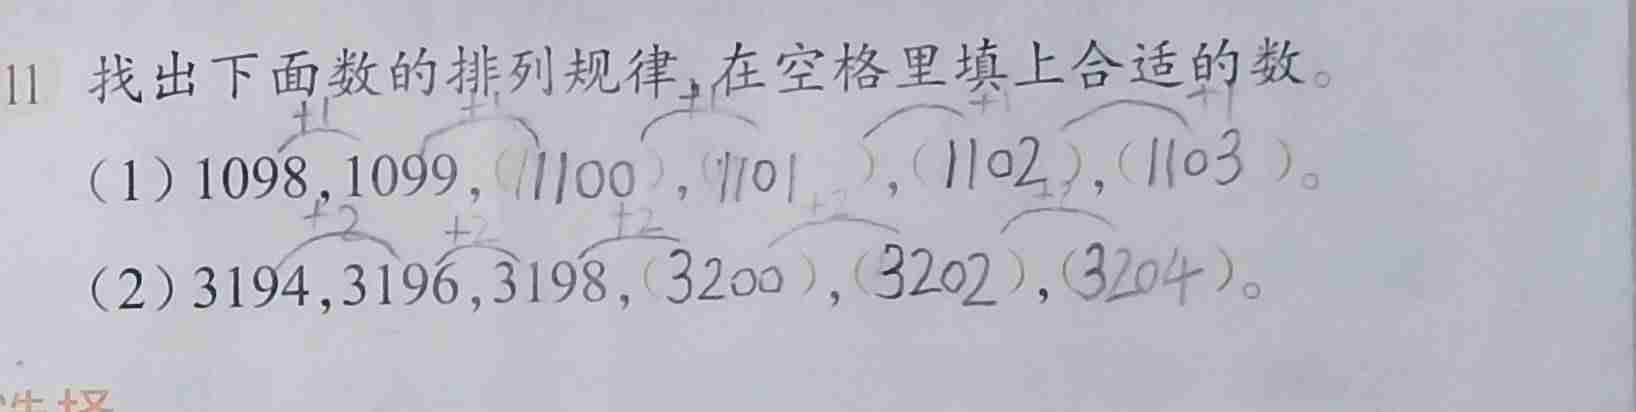 11 找出下面数的排列规律,在空格里填上合适的数。
+1 +1 +1 +1 +1
(1)1098,1099,(1100),(1101),(1102),(1103)。
+2 +2 +2 +2 +2
(2)3194,3196,3198,(3200),(3202),(3204)。
选择